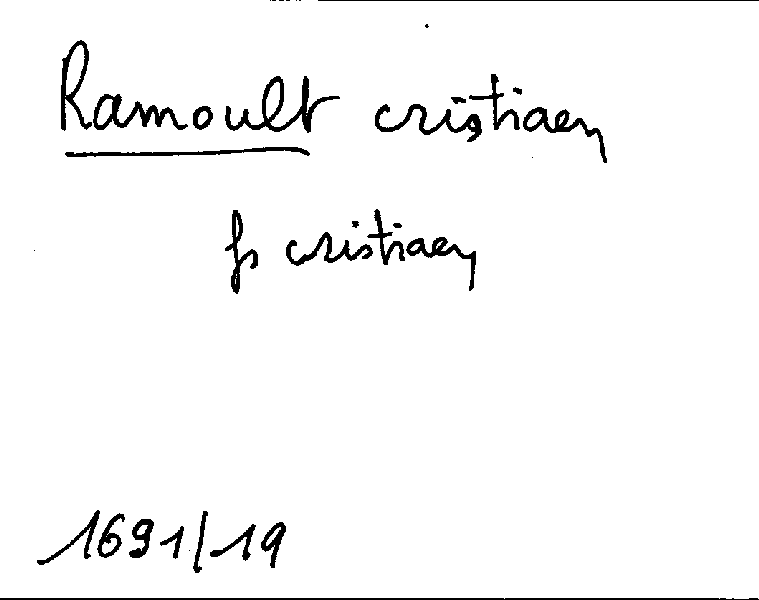 Ramoult cristiaen
fs cristiaen
1691/19